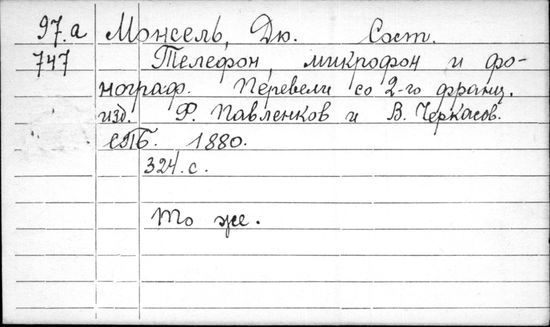 97.а Монсель, Дю. Сост.
747 Телефон, микрофон и фо-
нограф. Перевели со 2-го франц.
изд. Ф. Павленков и В. Черкасов.
СПБ. 1880.
324.с.
То же.